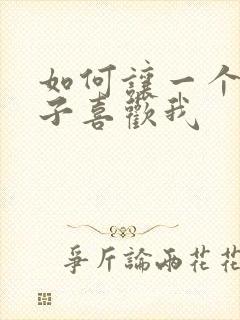 如何讓一个
子喜歡我
爭斤論兩花花